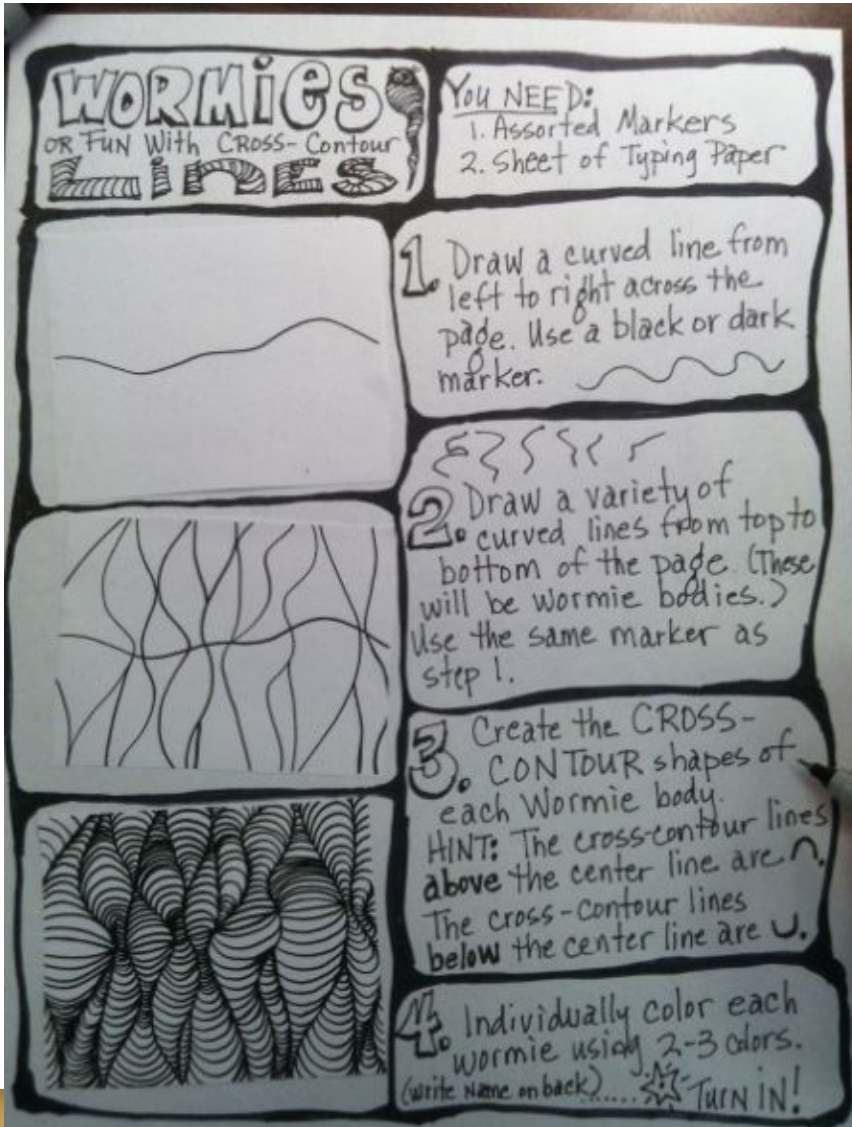 WORMiES
OR FUN With CROSS-Contour
LiNES
YOU NEED:
1. Assorted Markers
2. Sheet of Typing Paper
1. Draw a curved line from
left to right across the
page. Use a black or dark
marker.
2. Draw a variety of
curved lines from top to
bottom of the page. (These
will be wormie bodies.)
Use the same marker as
step 1.
3. Create the CROSS-
CONTOUR shapes of
each Wormie body.
HINT: The cross-contour lines
above the center line are ∩.
The cross-contour lines
below the center line are ∪.
4. Individually color each
wormie using 2-3 colors.
(Write Name on back)...... TURN IN!